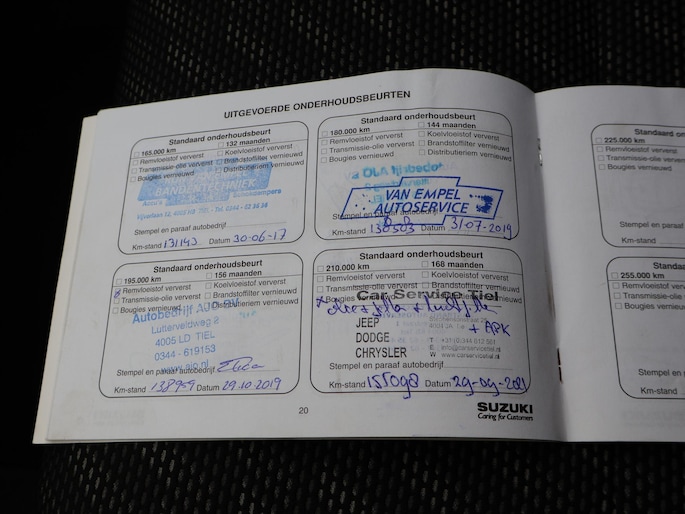 UITGEVOERDE ONDERHOUDSBEURTEN
Standaard onderhoudsbeurt
165.000 km 132 maanden
Remvloeistof ververst Koelvloeistof ververst
Transmissie-olie ververst Brandstoffilter vernieuwd
Bougies vernieuwd Distributieriem vernieuwd
BANDENTECHNIEK
Accu's Schokdempers
4005 HB TIEL - Tel. 0344 - 62 36 36
Stempel en paraaf autobedrijf
Km-stand 131143 Datum 30-06-17
Standaard onderhoudsbeurt
180.000 km 144 maanden
Remvloeistof ververst Koelvloeistof ververst
Transmissie-olie ververst Brandstoffilter vernieuwd
Bougies vernieuwd Distributieriem vernieuwd
VAN EMPEL
AUTOSERVICE
Stempel en paraaf autobedrijf
Km-stand 138503 Datum 31-07-2019
Standaard onderhoudsbeurt
195.000 km 156 maanden
Remvloeistof ververst Koelvloeistof ververst
Transmissie-olie ververst Brandstoffilter vernieuwd
Bougies vernieuwd Distributieriem vernieuwd
Autobedrijf AJP
Lutterveldweg 2
4005 LD TIEL
0344 - 619153
www.ajp.nl
Stempel en paraaf autobedrijf
Km-stand 138959 Datum 29.10.2019
Standaard onderhoudsbeurt
210.000 km 168 maanden
Remvloeistof ververst Koelvloeistof ververst
Transmissie-olie ververst Brandstoffilter vernieuwd
Bougies vernieuwd Distributieriem vernieuwd
Car Service Tiel
JEEP
+ APK
DODGE
CHRYSLER
E info@carservicetiel.nl
W www.carservicetiel.nl
Stempel en paraaf autobedrijf
Km-stand 155098 Datum 29-09-2021
20
SUZUKI
Caring for Customers
Standaard
225.000 km
Remvloeistof ververst
Transmissie-olie
Bougies vernieuwd
Stempel en paraaf
Km-stand
Standaard
255.000 km
Remvloeistof
Transmissie-olie
Bougies vernieuwd
Stempel en paraaf
Km-stand